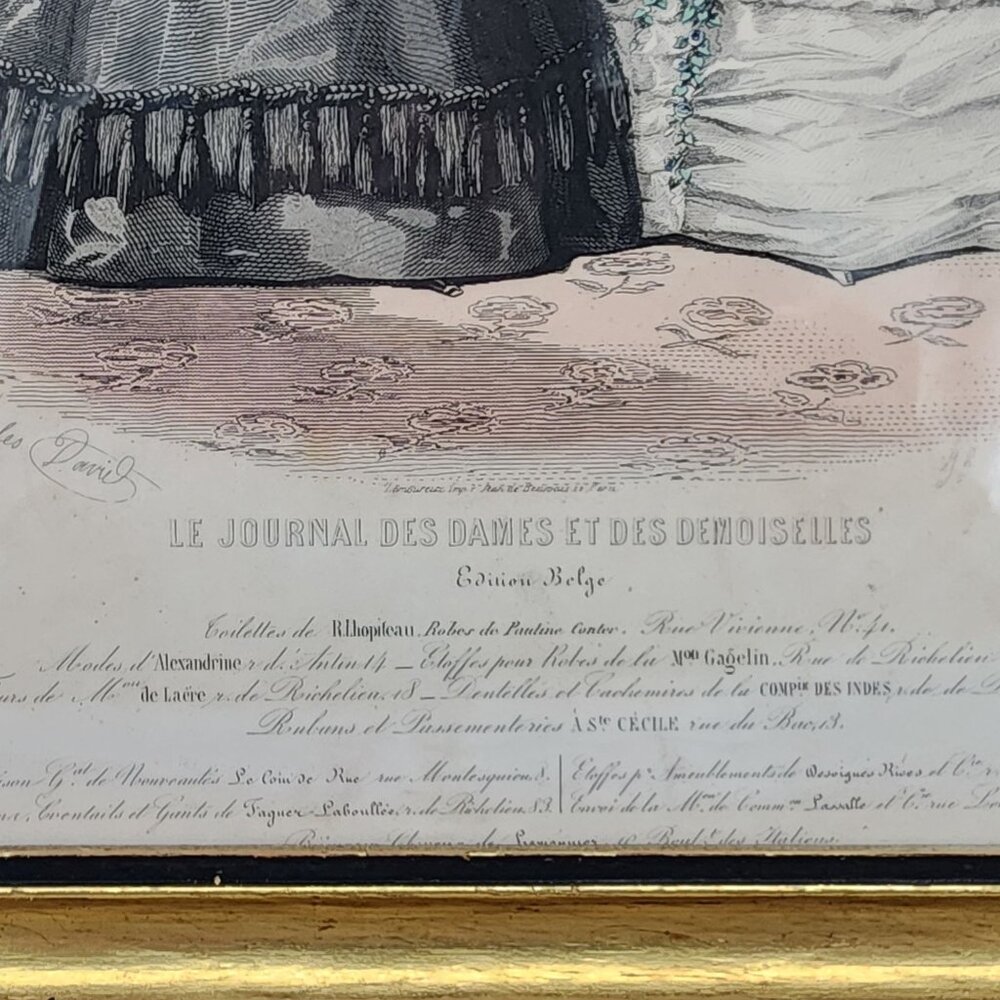 les David
LE JOURNAL DES DAMES ET DES DEMOISELLES
Edition Belge
Toilettes de R.Lhopiteau. Robes de Pauline Conter. Rue Vivienne, Nº 41.
Modes d'Alexandrine r. d'Antin 14 — Etoffes pour Robes de la Mon Gagelin. Rue de Richelieu
urs de Mme de Laëre r. de Richelieu, 18 — Dentelles et Cachemires de la COMPie DES INDES r. de
Rubans et Passementeries À Ste CÉCILE rue du Bac, 13.
ison Gnl de Nouveautés Le Coin de Rue rue Montesquieu, 8.
Etoffes pr Ameublements de et Cie
Eventails et Gants de Faguer Laboullée, r. de Richelieu, 83.
Envoi de la Mon de Common Lassalle et Cie rue
de Bould des Italiens.